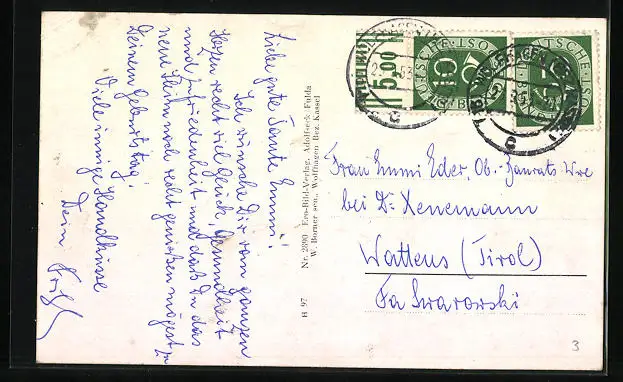 Liebe gute Tante Emmi!
Ich wünsche Dir von ganzem
Herzen recht viel Glück, Gesundheit
und Zufriedenheit und daß Du das
neue Heim noch recht genießen mögest zu
Deinem Geburtstag!
Viele innige Handküsse
Dein
H 97 Nr. 2890 Ern-Bild-Verlag, Adolfseck/Fulda
W. Borner sen., Wolfhagen Bez. Kassel
5.00
10
Frau Emmi Eder, Ob.-Baurats-Wwe
bei Dr. Xenemann
Wattens (Tirol)
Fa Swarowski
3